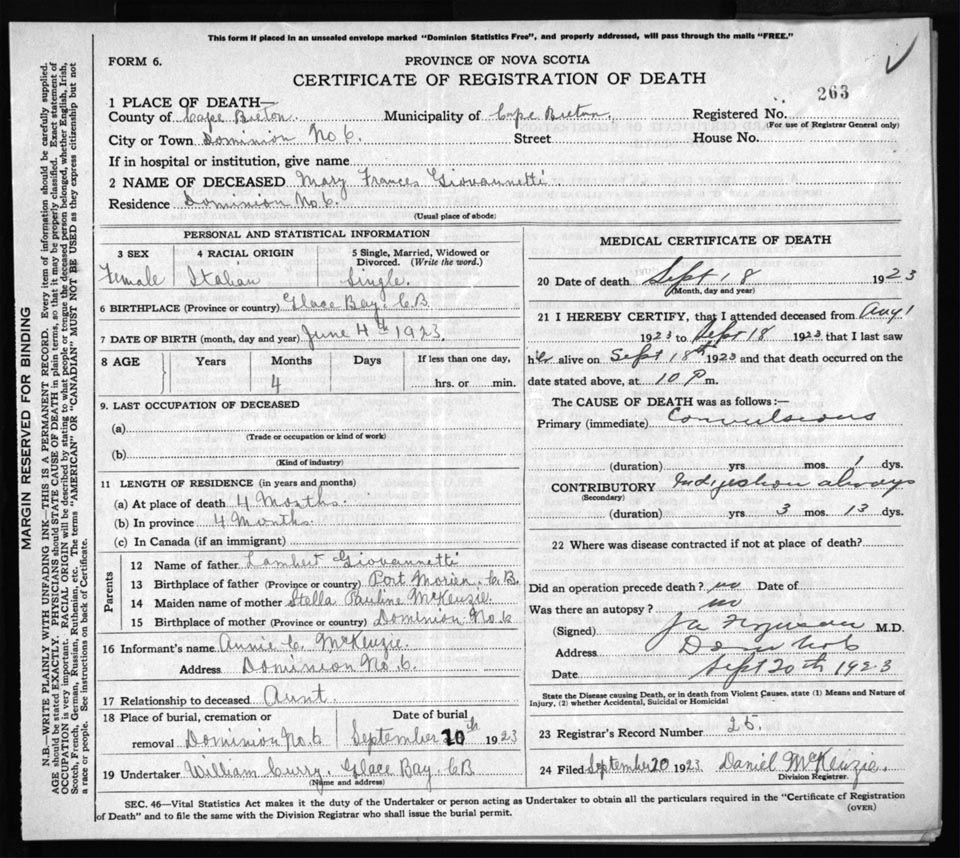 This form if placed in an unsealed envelope marked "Dominion Statistics Free", and properly addressed, will pass through the mails "FREE."
FORM 6.
PROVINCE OF NOVA SCOTIA
CERTIFICATE OF REGISTRATION OF DEATH
263
1 PLACE OF DEATH—
County of Cape Breton. Municipality of Cape Breton. Registered No.
(For use of Registrar General only)
City or Town Dominion No 6. Street House No.
If in hospital or institution, give name
2 NAME OF DECEASED Mary Frances Giovannetti
Residence Dominion No. 6.
(Usual place of abode)
PERSONAL AND STATISTICAL INFORMATION
3 SEX 4 RACIAL ORIGIN 5 Single, Married, Widowed or Divorced. (Write the word.)
Female Italian Single.
6 BIRTHPLACE (Province or country) Glace Bay, C.B.
7 DATE OF BIRTH (month, day and year) June 4th 1923.
8 AGE Years Months Days If less than one day,
4 hrs. or min.
9. LAST OCCUPATION OF DECEASED
(a)
(Trade or occupation or kind of work)
(b)
(Kind of industry)
11 LENGTH OF RESIDENCE (in years and months)
(a) At place of death 4 Months.
(b) In province 4 Months.
(c) In Canada (if an immigrant)
Parents
12 Name of father Lambert Giovannetti
13 Birthplace of father (Province or country) Port Morien, C.B.
14 Maiden name of mother Stella Pauline McKenzie.
15 Birthplace of mother (Province or country) Dominion No. 6
16 Informant's name Annie C. McKenzie.
Address Dominion No. 6.
17 Relationship to deceased Aunt.
18 Place of burial, cremation or removal Dominion No. 6
Date of burial September 20th 1923
19 Undertaker William Curry, Glace Bay, CB
(Name and address)
MEDICAL CERTIFICATE OF DEATH
20 Date of death Sept 18 1923
(Month, day and year)
21 I HEREBY CERTIFY, that I attended deceased from Aug 1
1923 to Sept 18 1923 that I last saw
her alive on Sept 18th 1923 and that death occurred on the
date stated above, at 10 P m.
The CAUSE OF DEATH was as follows:—
Primary (immediate) Convulsions
(duration) yrs. mos. 1 dys.
CONTRIBUTORY Indigestion always
(Secondary)
(duration) yrs 3 mos. 13 dys.
22 Where was disease contracted if not at place of death?
Did an operation precede death? no Date of
Was there an autopsy? no
(Signed) Ferguson M.D.
Address Dom No 6
Date Sept 20th 1923
State the Disease causing Death, or in death from Violent Causes, state (1) Means and Nature of
Injury, (2) whether Accidental, Suicidal or Homicidal
23 Registrar's Record Number 25.
24 Filed September 20 1923 Daniel McKenzie.
Division Registrar.
SEC. 46—Vital Statistics Act makes it the duty of the Undertaker or person acting as Undertaker to obtain all the particulars required in the "Certificate of Registration
of Death" and to file the same with the Division Registrar who shall issue the burial permit.
(OVER)
MARGIN RESERVED FOR BINDING
N.B.—WRITE PLAINLY WITH UNFADING INK—THIS IS A PERMANENT RECORD. Every item of information should be carefully supplied.
AGE should be stated EXACTLY. PHYSICIANS should STATE CAUSE OF DEATH in plain terms, so that it may be properly classified. Exact statement of
OCCUPATION is very important. RACIAL ORIGIN will be described by stating to what people or tongue the deceased person belonged, whether English, Irish,
Scotch, French, German, Russian, Ruthenian, etc. The terms "AMERICAN" OR "CANADIAN" MUST NOT BE USED as they express citizenship but not
a race or people. See instructions on back of Certificate.